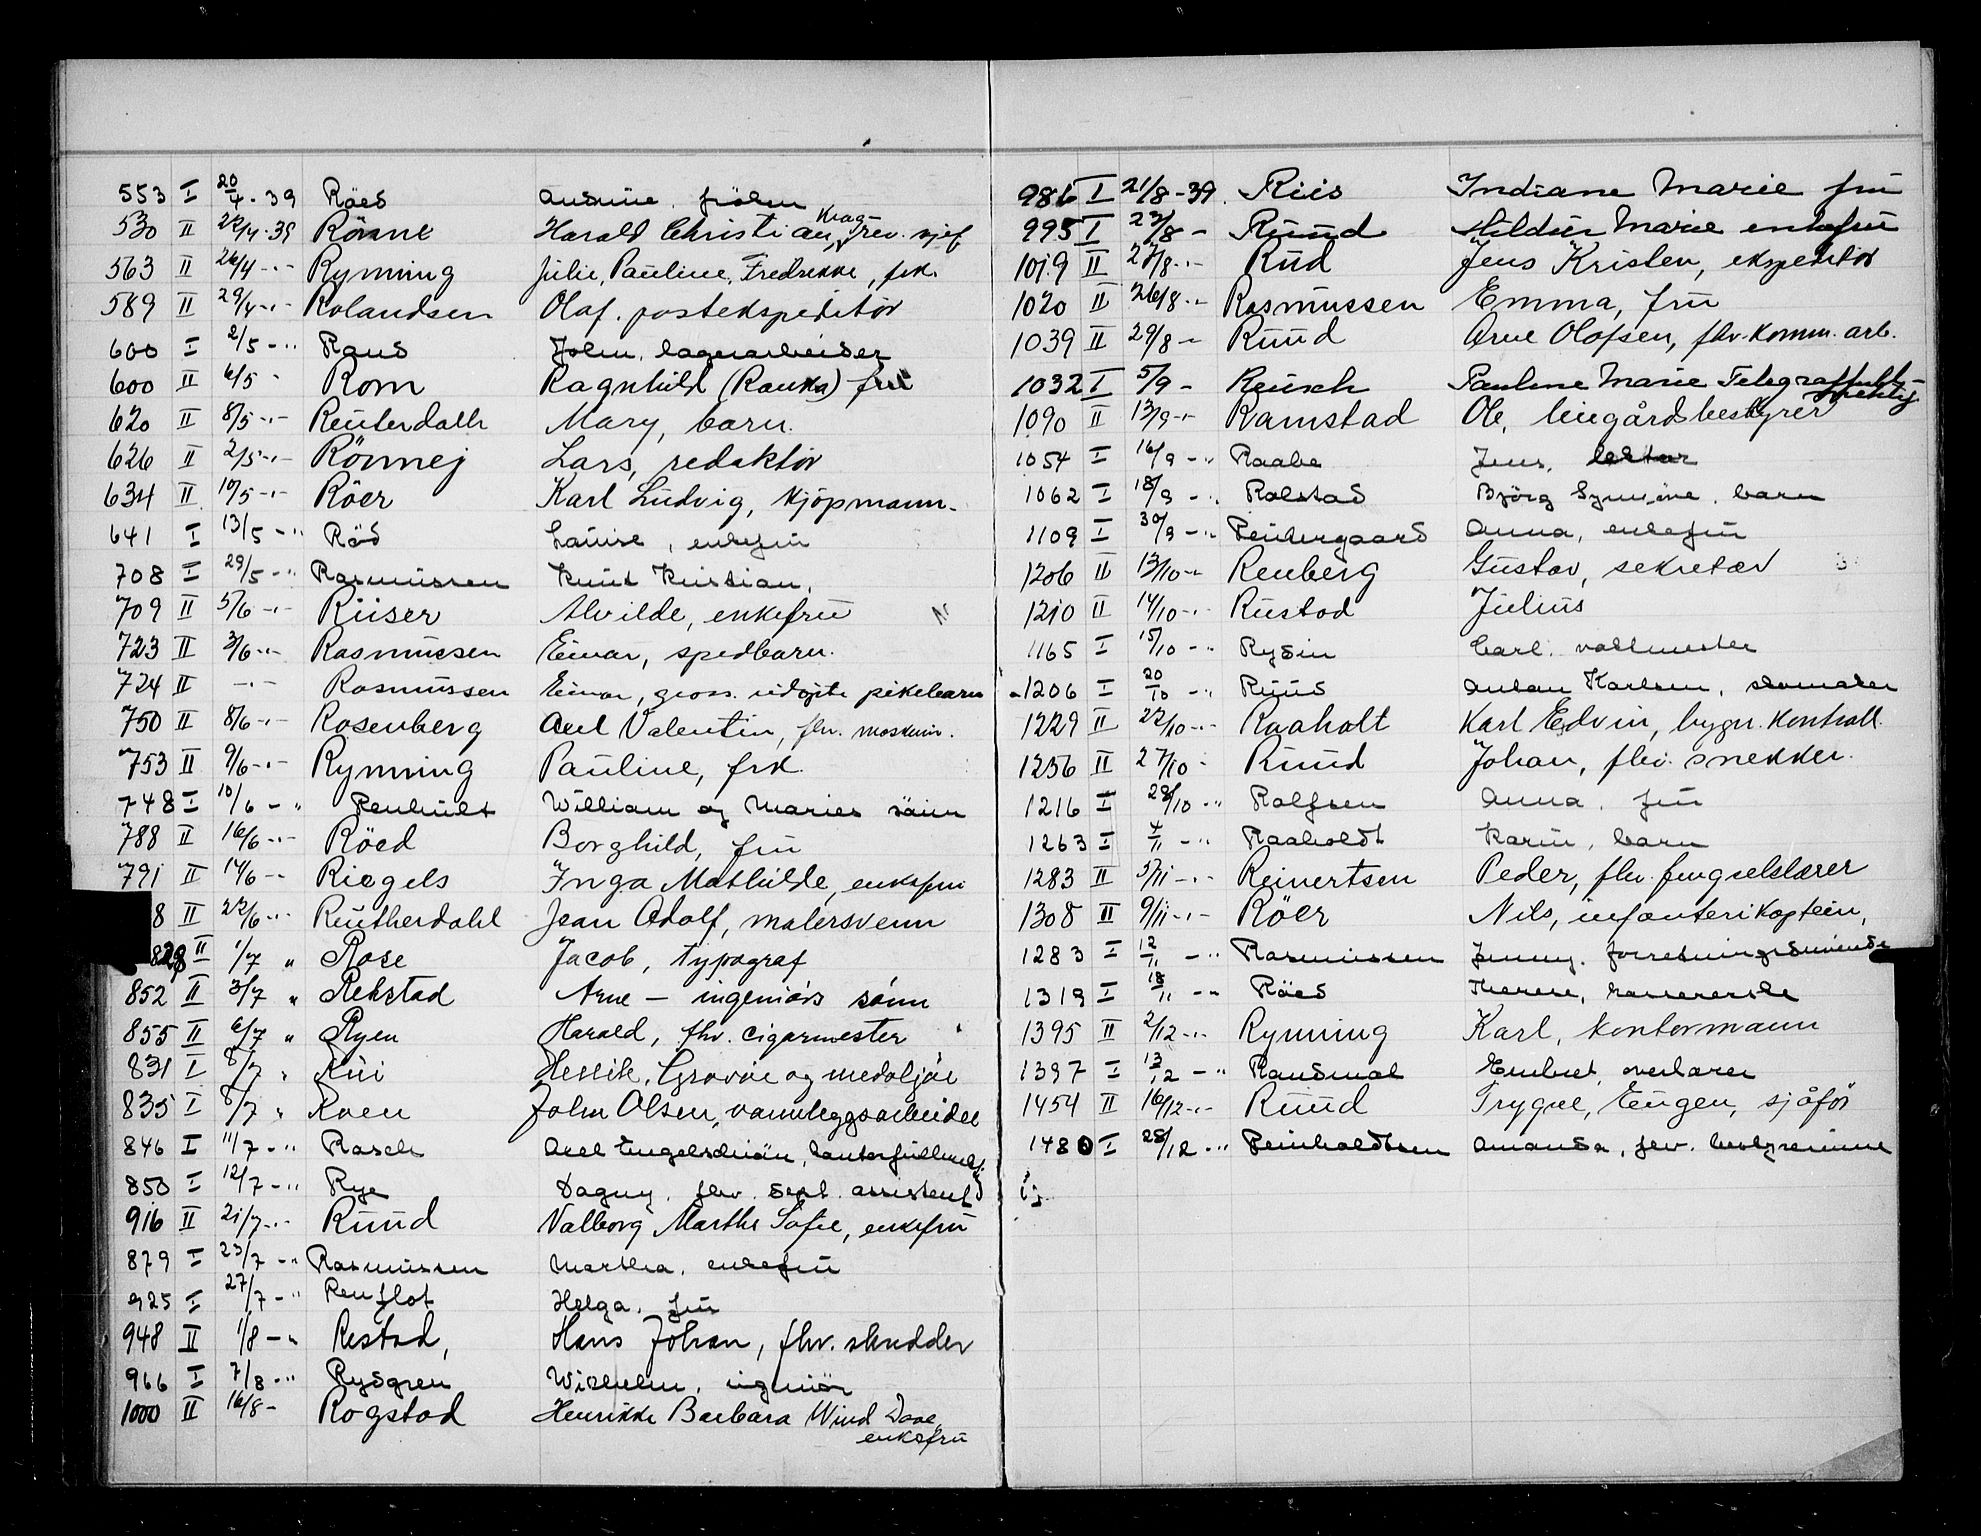 553 I 20/4 - 39 Röed
530 II 22/4 - 39 Rönne Harald Christian Krag- rev. sjef
563 II 26/4 -"- Rymning Julie, Pauline, Fredrikke, frk.
589 II 29/4 -"- Rolandsen Olaf. postekspeditör
600 I 2/5 -"- Raud John, lagerarbeider
600 II 6/5 " Rom Ragnhild (Rauka) frü
620 II 8/5 -"- Reuterdalh Mary, barn.
626 II 2/5 -"- Rönnej Lars, redaktör
634 II 10/5 -"- Röer Karl Ludvig, kjöpmann.
641 I 13/5 -"- Röd Lauise, enkefrü
708 I 29/5 -" Rasmussen Knut Kristian.
709 II 5/6 -"- Riiser Alvilde, enkefrü
723 II 3/6 -"- Rasmussen Einar, spedbarn.
724 II -"- Rasmussen Einar, gross. udöpte pikebarn
750 II 8/6 -"- Rosenberg Axel Valentin, fhv. maskinn.
753 II 9/6 -"- Rymning Pauline, frk.
748 I 10/6 -" Renhult William og Maries sönn
788 II 16/6 -"- Röed Borghild, frü
791 II 14/6 -" Riegels Inga Mathilde, enkefrü
8 II 22/6 -"- Rütherdahl Jean Adolf, malersvenn
828 II 1/7 " Rose Jacob, typograf
852 II 3/7 " Rekstad Arne - ingeniörs sönn
855 II 6/7 " Ryen Harald, fhv. cigarmester
831 I 8/7 " Rüi Gravör og medaljör
835 I 8/7 " Roen John Olsen, vannleggsarbeider
846 I 11/7 -" Rasch Axel
850 I 12/7 -" Rye Dagny. fhv. assistent
916 II 21/7 -"- Rüüd Valborg Marthe Sofie, enkefrü
879 I 23/7 -" Rasmussen Martha. enkefrü
925 I 27/7 -" Renflot Helga. frü
948 II 1/8 -" Restad, Hans Johan, fhv. skredder
966 I 7/8 -" Rydgren Wilhelm. ingeniör
1000 II 16/8 - Rogstad Henrikke Barbara Wind Daae, enkefrü
986 I 21/8 - 39. Riis Indiane Marie frü
995 I 23/8 - Rüüd Hildür Marie enkefrü
1019 II 27/8 -"- Rüd Jens Kristen, ekspeditör
1020 II 26/8 -" Rasmussen Emma, frü
1039 II 29/8 -" Rüüd Arne Olofsen, fhv. komm. arb.
1032 I 5/9 - Reusch Pauline Marie
1090 II 13/9 -"- Ramstad Ole, leiegårdbestyrer
1054 I 16/9 -" Raabe Jens, lektor
1062 I 18/9 -" Rolstad Björg barn
1109 I 30/9 -" Reutergaard Anna, enkefrü
1206 II 13/10 -" Renberg Gustav, sekretær
1210 II 14/10 -"- Rustad Julius
1165 I 15/10 -" Rydin Carl. valtmester
1206 I 20/10 -" Rüüd Anton Karlsen, skomaker
1229 II 22/10 -"- Raaholt Karl Edvin, bygn. kontroll.
1256 II 27/10 - Rüüd Johan, fhv. snekker.
1216 I 28/10 -" Rolfsen Anna, frü
1263 I 4/11 -" Raaholdt Karin, barn
1283 II 5/11 -"- Reinertsen Peder, fhv. fengselslærer
1308 II 9/11 -"- Röer Nils, infanterikaptein,
1283 I 12/11 -" Rasmussen Jenny. forretningsdrivende
1319 I 18/11 -" Röed Therese, kassererske
1395 II 2/12 -"- Rymning Karl, kontormann
1397 I 13/12 -" Raudmal Embret, overlærer
1454 II 16/12 -"- Rüüd Trygve, Eugen, sjåför
1480 I 28/12 -" Reinholdtsen Amanda, fhv. bestyrerinne